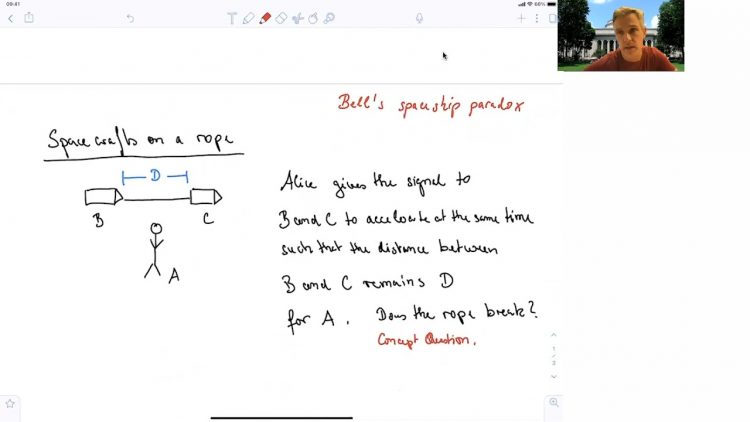 09:41
66%
Bell's spaceship paradox
Spacecrafts on a rope
D
B
C
A
Alice gives the signal to
B and C to accelerate at the same time
such that the distance between
B and C remains D
for A. Does the rope break?
Concept Question.
1
2